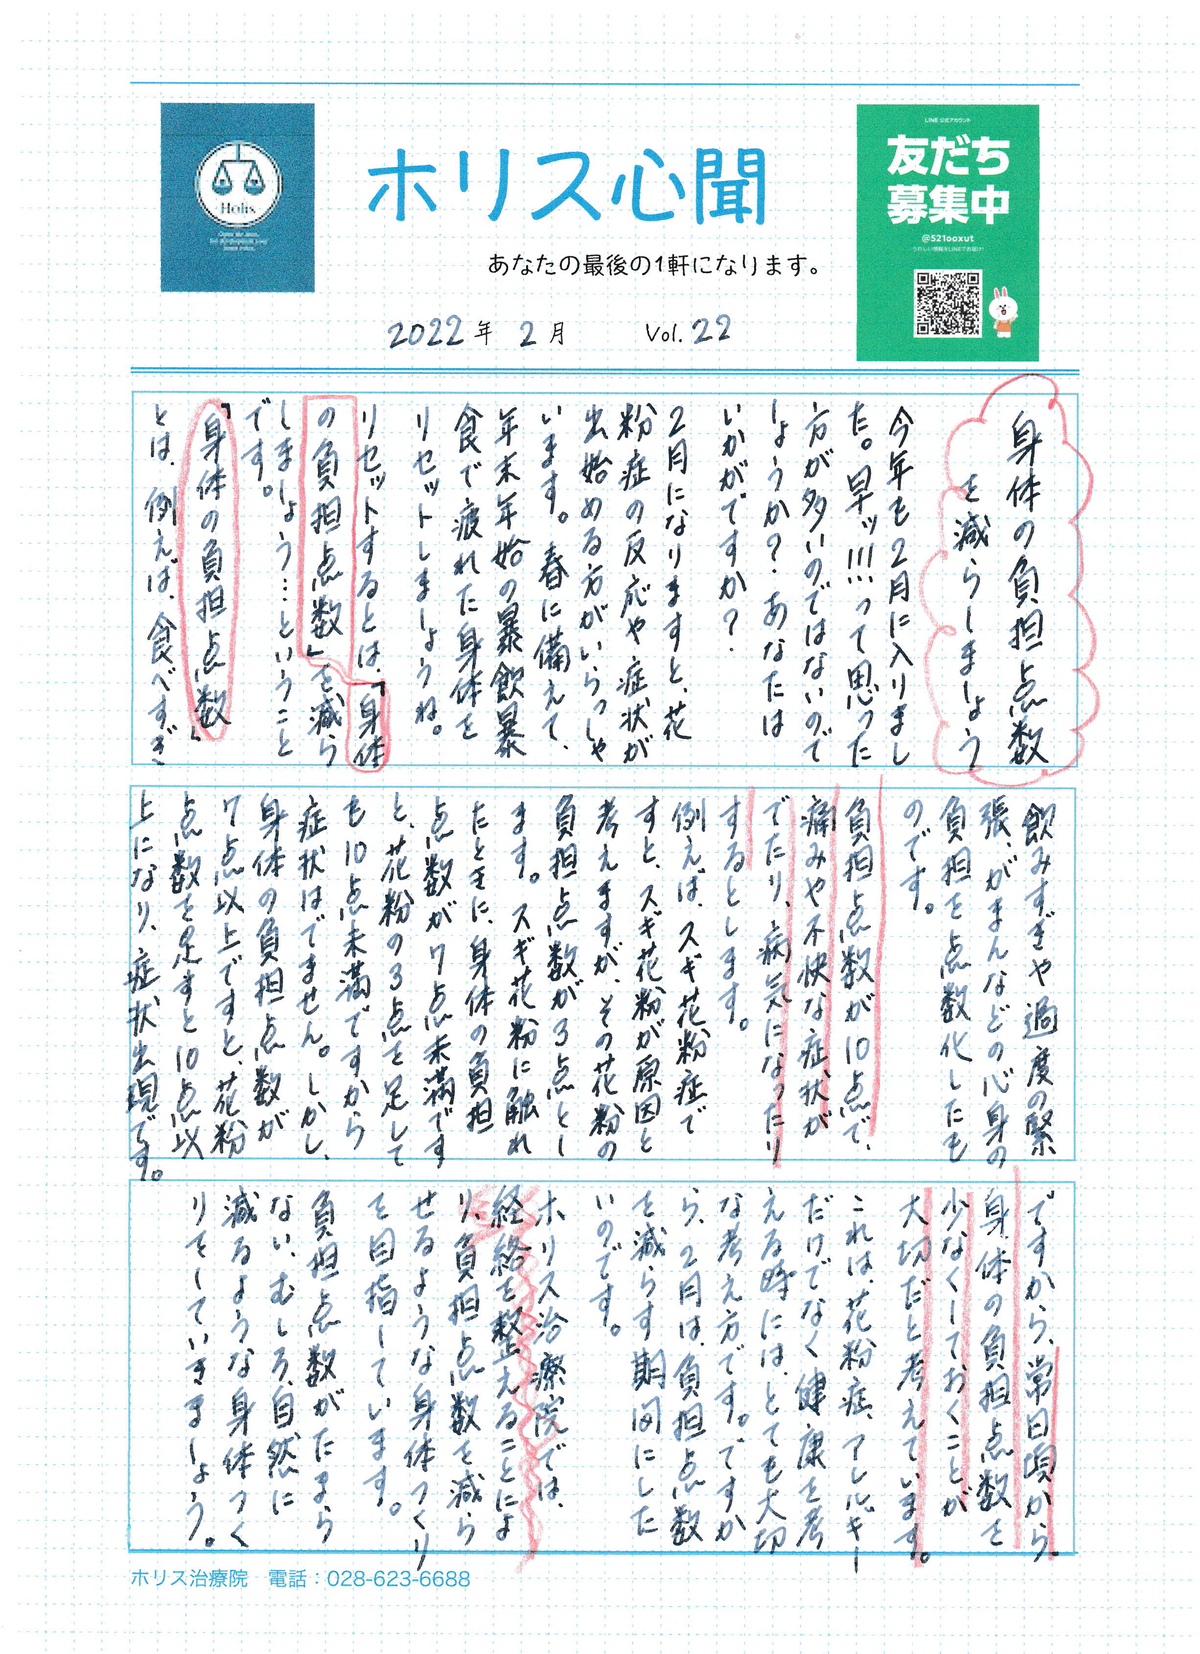 Holis
ホリス心聞
あなたの最後の1軒になります。
2022年 2月 Vol.22
LINE公式アカウント
友だち
募集中
@521ooxut
うれしい情報をLINEでお届け!
身体の負担点数
を減らしましょう
今年も2月に入りまし
た。早ッ!!!って思った
方が多いのではないので
しょうか?あなたは
いかがですか?
2月になりますと、花
粉症の反応や症状が
出始める方がいらっしゃ
います。春に備えて、
年末年始の暴飲暴
食で疲れた身体を
リセットしましょうね。
リセットするとは、「身体
の負担点数」を減ら
しましょう…ということ
です。
「身体の負担点数」
とは、例えば、食べすぎ
飲みすぎや過度の緊
張、がまんなどの心身の
負担を点数化したも
のです。
負担点数が10点で、
痛みや不快な症状が
でたり、病気になったり
するとします。
例えば、スギ花粉症で
すと、スギ花粉が原因と
考えますが、その花粉の
負担点数が3点とし
ます。スギ花粉に触れ
たときに、身体の負担
点数が7点未満です
と、花粉の3点を足して
も10点未満ですから
症状はでません。しかし、
身体の負担点数が
7点以上ですと、花粉
点数を足すと10点以
上になり、症状出現です。
ですから、常日頃から、
身体の負担点数を
少なくしておくことが
大切だと考えています。
これは、花粉症、アレルギー
だけでなく健康を考
える時には、とても大切
な考え方です。ですか
ら、2月は、負担点数
を減らす期間にした
いのです。
ホリス治療院では、
経絡を整えることによ
り、負担点数を減ら
せるような身体つくり
を目指しています。
負担点数がたまら
ない、むしろ、自然に
減るような身体つく
りをしていきましょう。
ホリス治療院 電話:028-623-6688